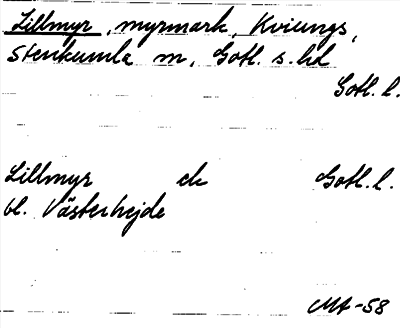 Lillmyr, myrmark, Kviungs,
Stenkumla sn, Gotl. s. hd
Gotl. l.
Lillmyr ek Gotl. l.
bl. Västerhejde
MA-58